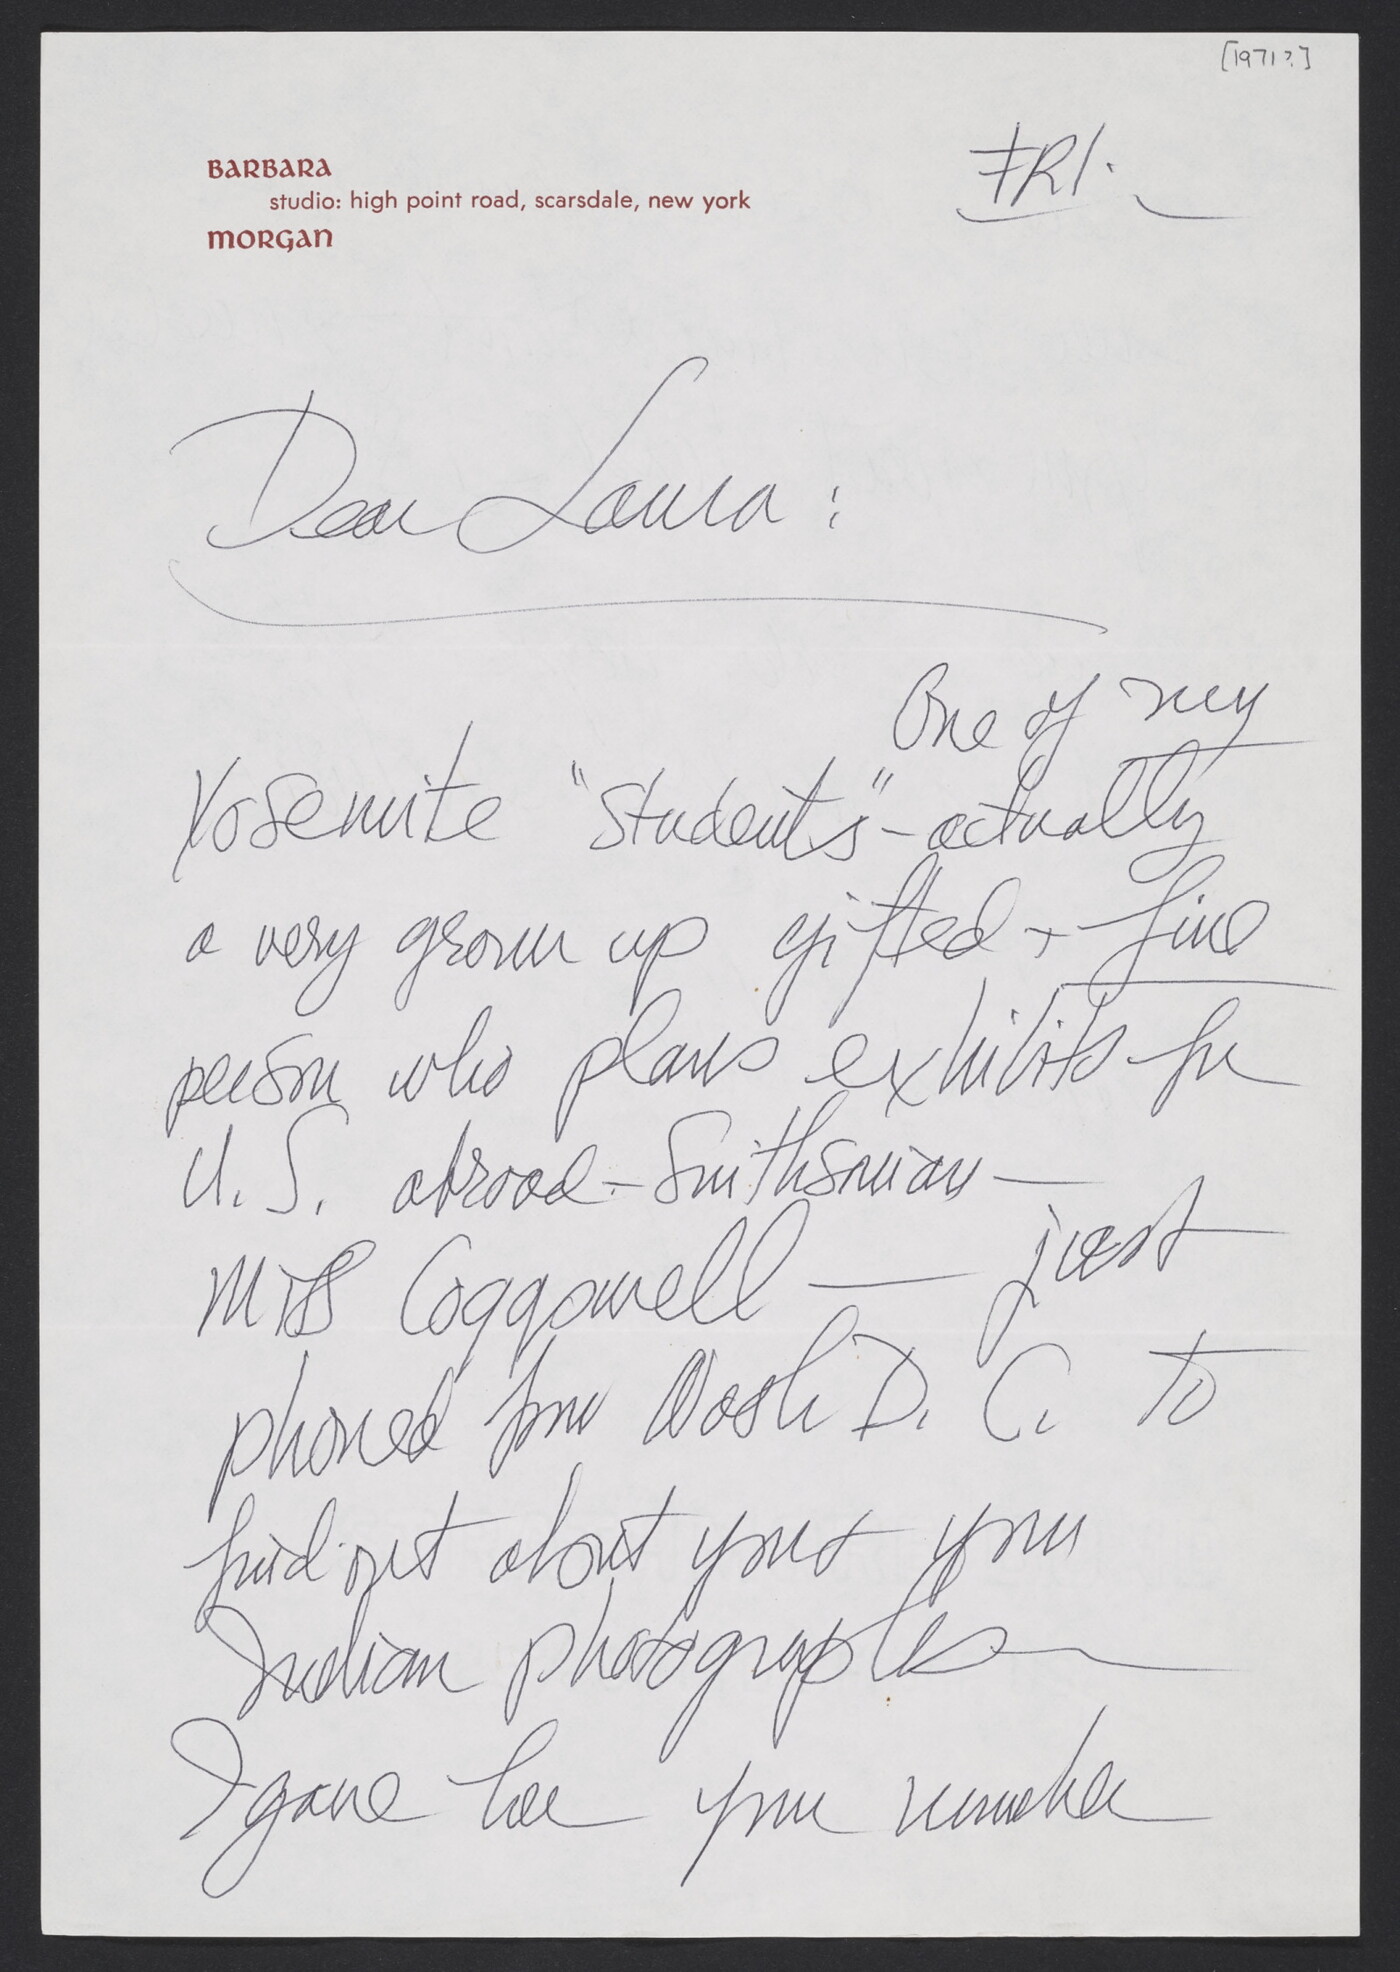 [1971?]
FRI.
BARBARA
studio: high point road, scarsdale, new york
MORGAN
Dear Laura:
One of my
Yosemite "Students" - actually
a very grown up gifted + fine
person who plans exhibits for
U.S. abroad - Smithsonian —
Miss Coggswell — just
phoned from Wash D.C. to
find out about you + your
Indian photographs
I gave her your number